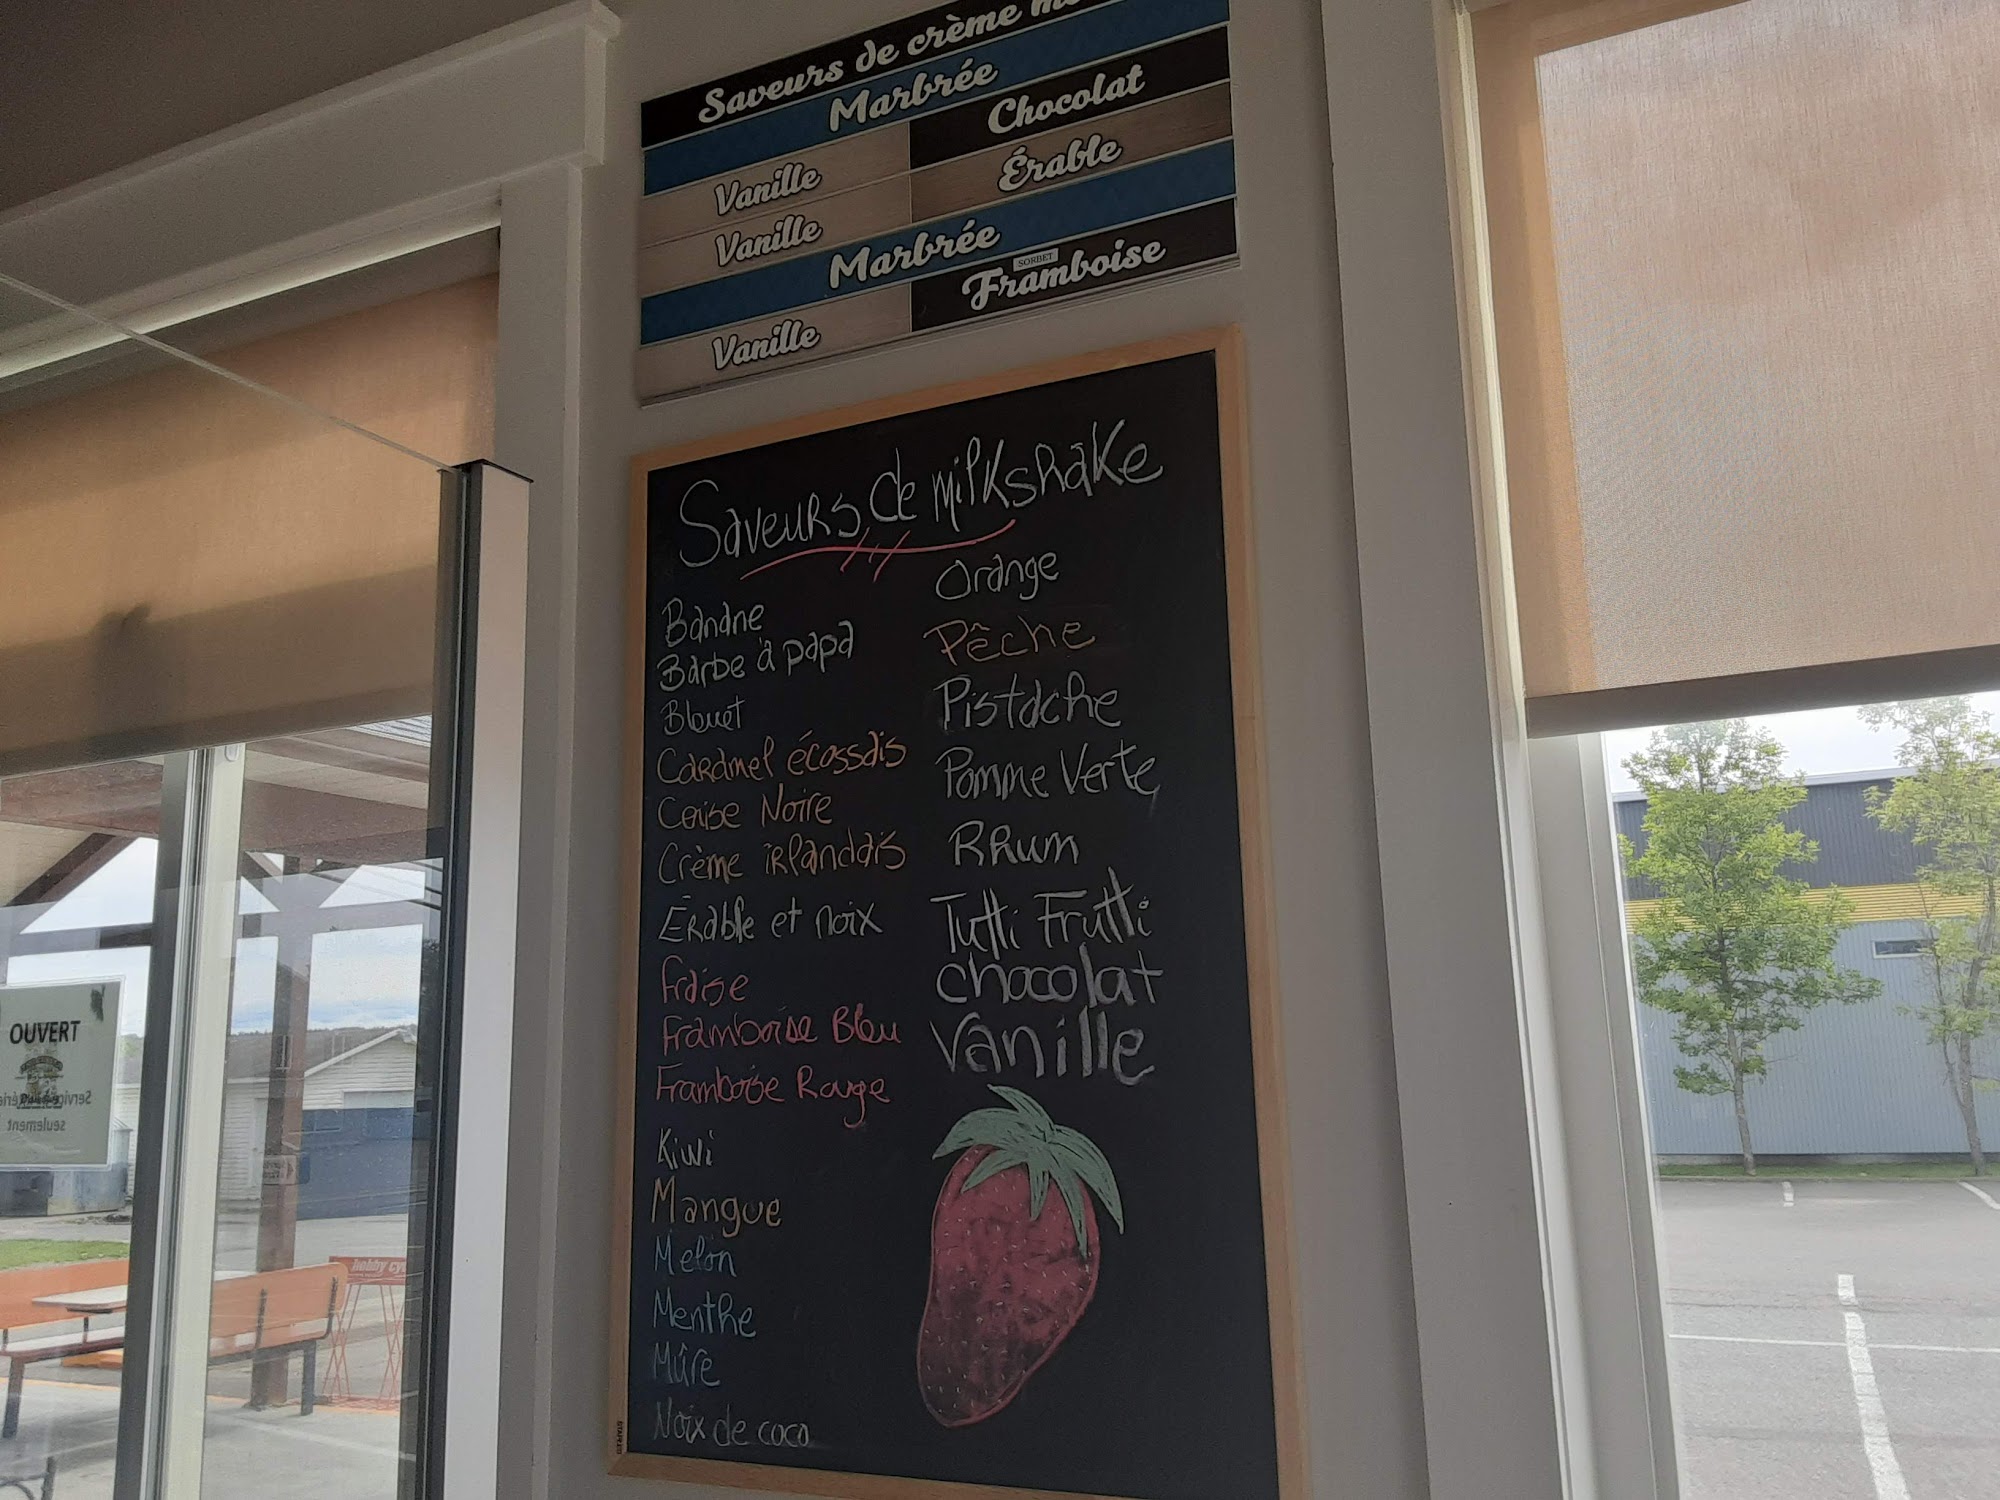 Saveurs de crème
Marbrée
Vanille Chocolat
Vanille Érable
Marbrée
SORBET
Vanille Framboise
Saveurs de milkshake
Banane
Barbe à papa
Bleuet
Caramel écossais
Cerise Noire
Crème irlandais
Érable et noix
Fraise
Framboise Bleu
Framboise Rouge
Kiwi
Mangue
Melon
Menthe
Mûre
Noix de coco
Orange
Pêche
Pistache
Pomme Verte
Rhum
Tutti Frutti
chocolat
Vanille
OUVERT
seulement
hobby